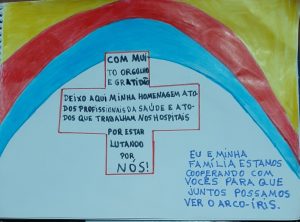 COM MUI
TO ORGULHO
E GRATIDÃO
DEIXO AQUI MINHA HOMENAGEM A TO
DOS PROFISSIONAIS DA SAÚDE E A TO-
DOS QUE TRABALHAM NOS HOSPITAIS
POR ESTAR
LUTANDO
POR
NÓS!
EU E MINHA
FAMÍLIA ESTAMOS
COOPERANDO COM
VOCÊS PARA QUE
JUNTOS POSSAMOS
VER O ARCO-ÍRIS.